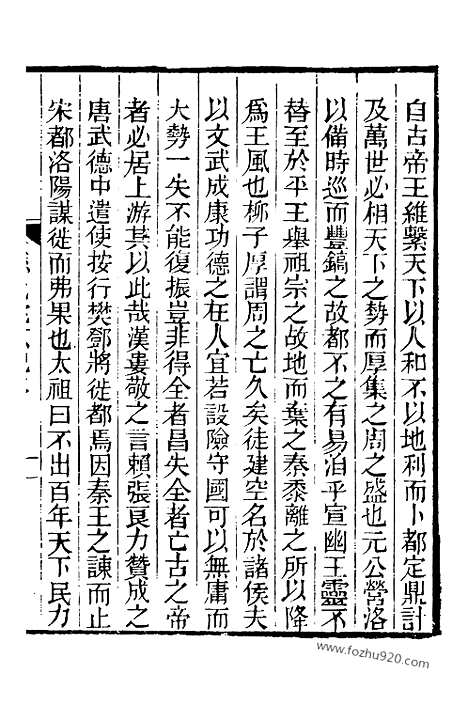 自古帝王維繫天下以人和不以地利而卜都定鼎計
及萬世必相天下之勢而厚集之周之盛也元公營洛
以備時巡而豐鎬之故都不之有易洎乎宣幽王靈不
替至於平王舉祖宗之故地而棄之秦黍離之所以降
爲王風也柳子厚謂周之亡久矣徒建空名於諸侯夫
以文武成康功德之在人宜若設險守國可以無庸而
大勢一失不能復振豈非得全者昌失全者亡古之帝
者必居上游其以此哉漢婁敬之言賴張良力贊成之
唐武德中遣使按行樊鄧將徙都焉因秦王之諫而止
宋都洛陽謀徙而弗果也太祖曰不出百年天下民力
www.fozhu920.com